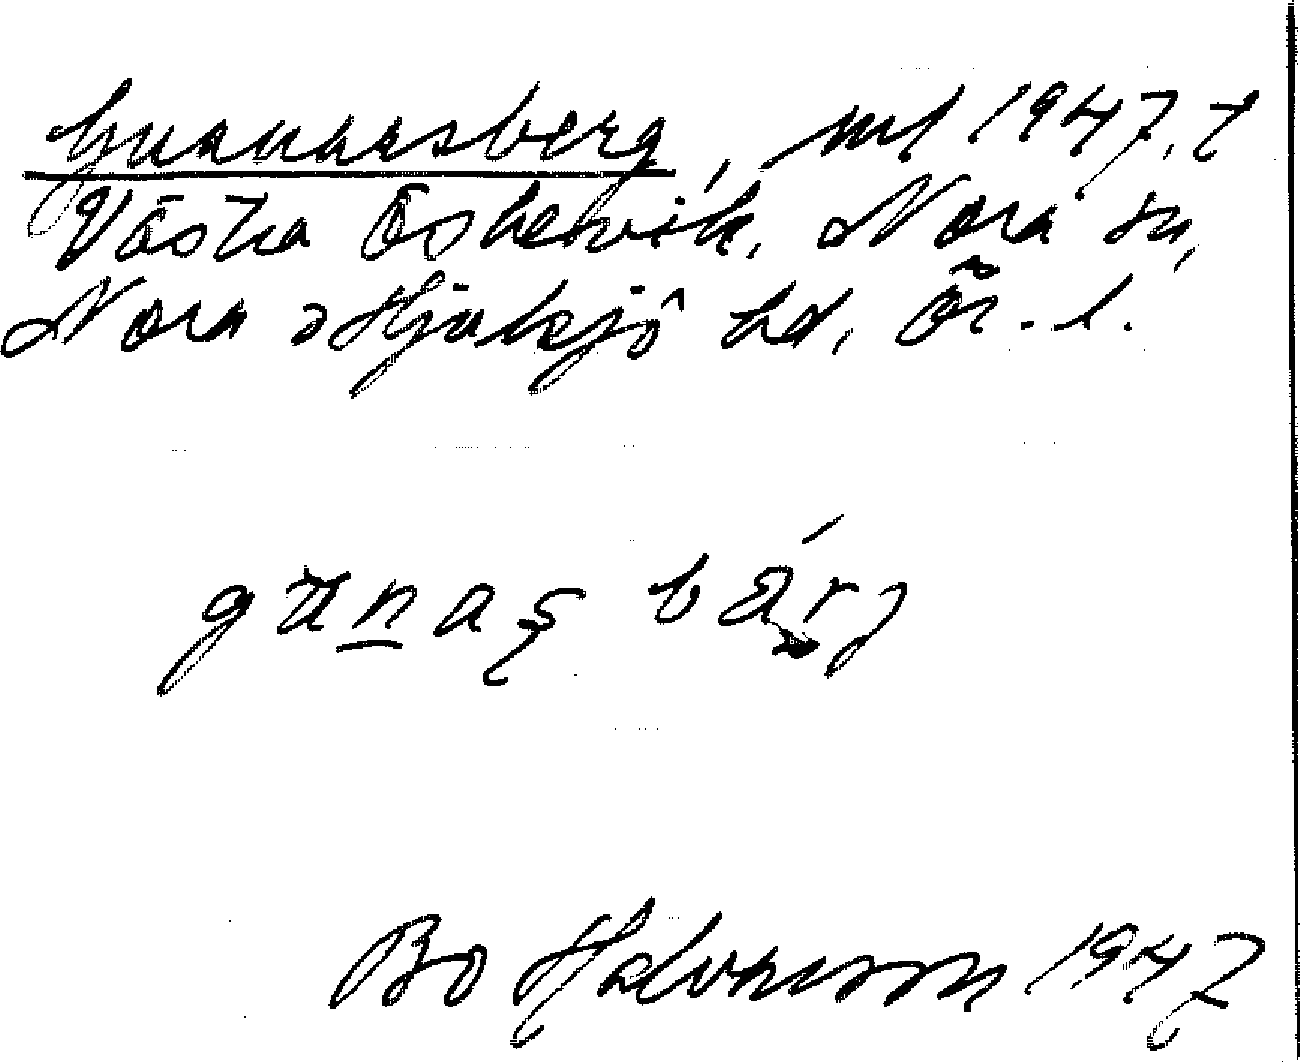 Gunnarsberg, uf 1947, t
Västra Öskevik, Nora sn,
Nora o Hjulsjö hd, Ör. l.
gunaş bärj
Bo 1947